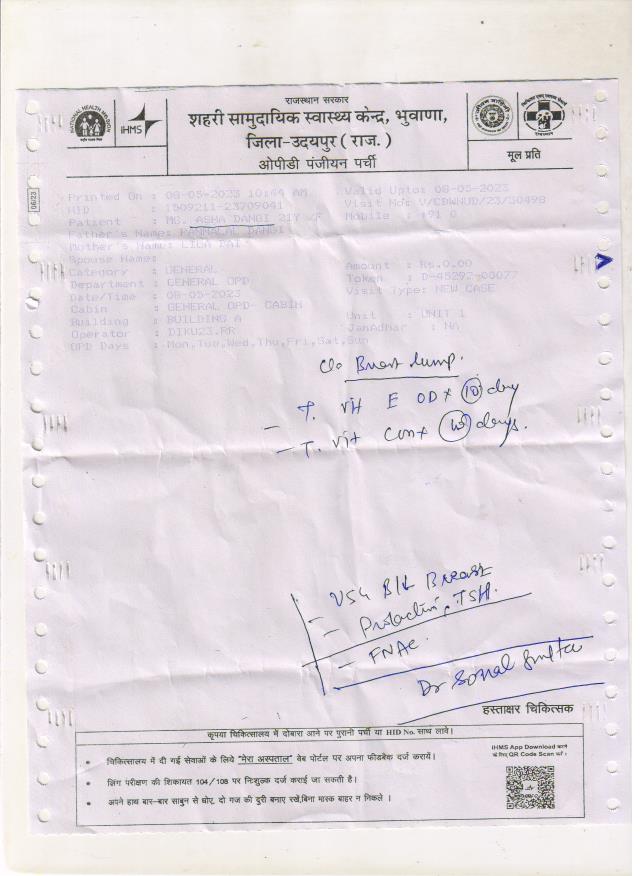 राजस्थान सरकार
शहरी सामुदायिक स्वास्थ्य केन्द्र, भुवाणा,
जिला-उदयपुर ( राज. )
ओपीडी पंजीयन पर्ची
NATIONAL HEALTH MISSION
IHMS
मूल प्रति
06/23
Printed On : 08-05-2023 10:44 AM Valid Upto: 08-05-2023
HID : 1509211-23709041 Visit No: V/CDWNUD/23/50498
Patient : MS. ASHA DANGI 21Y /F Mobile : +91 0
Father's Name: DANGI
Mother's Name: BAI
Spouse Name:
Category : GENERAL Amount : Rs.0.00
Department : GENERAL OPD Token : D-45292-00077
Date/Time : 08-05-2023 Visit Type: NEW CASE
Cabin : GENERAL OPD- CABIN
Building : BUILDING A Unit : UNIT 1
Operator : DIKU23.RR JanAdhar : NA
OPD Days : Mon,Tue,Wed,Thu,Fri,Sat,Sun
C/o Breast lump.
- T. Vit E OD x 10 day
- T. Vit C on x 10 days.
- USG B/L Breast
- Prolactin, TSH.
- FNAC.
Dr Sonal Gupta
हस्ताक्षर चिकित्सक
कृपया चिकित्सालय में दोबारा आने पर पुरानी पर्ची या HID No. साथ लावें।
• चिकित्सालय में दी गई सेवाओं के लिये "मेरा अस्पताल" वेब पोर्टल पर अपना फीडबेक दर्ज करायें।
• लिंग परीक्षण की शिकायत 104/108 पर निःशुल्क दर्ज कराई जा सकती है।
• अपने हाथ बार-बार साबुन से धोए, दो गज की दुरी बनाए रखें,बिना मास्क बाहर न निकले ।
IHMS App Download करने
के लिए QR Code Scan करें ।